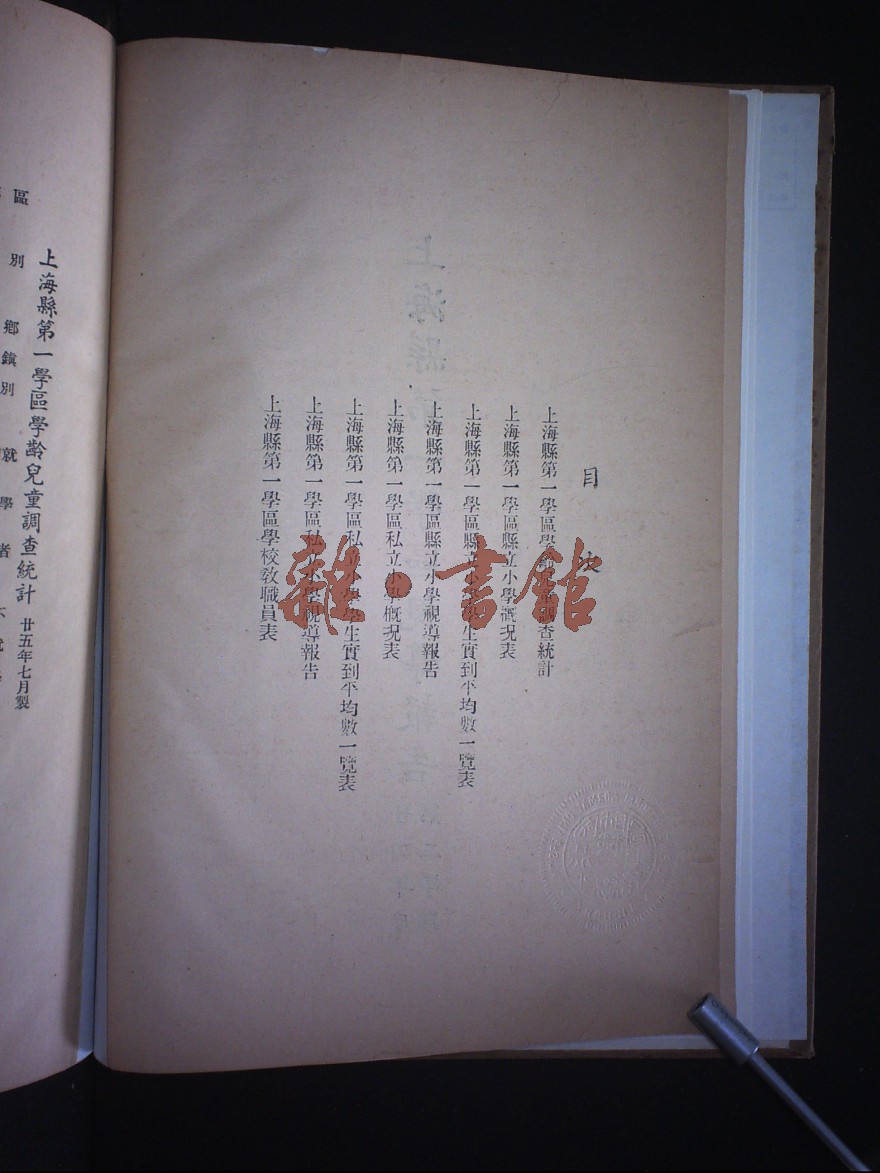 目次
上海縣第一學區學齡兒童調查統計
上海縣第一學區縣立小學概況表
上海縣第一學區縣立小學學生實到平均數一覽表
上海縣第一學區縣立小學視導報告
上海縣第一學區私立小學概況表
上海縣第一學區私立小學學生實到平均數一覽表
上海縣第一學區私立小學視導報告
上海縣第一學區學校教職員表
雜·書館
上海縣第一學區學齡兒童調查統計 廿五年七月製
區別
鄉鎮別
就學者